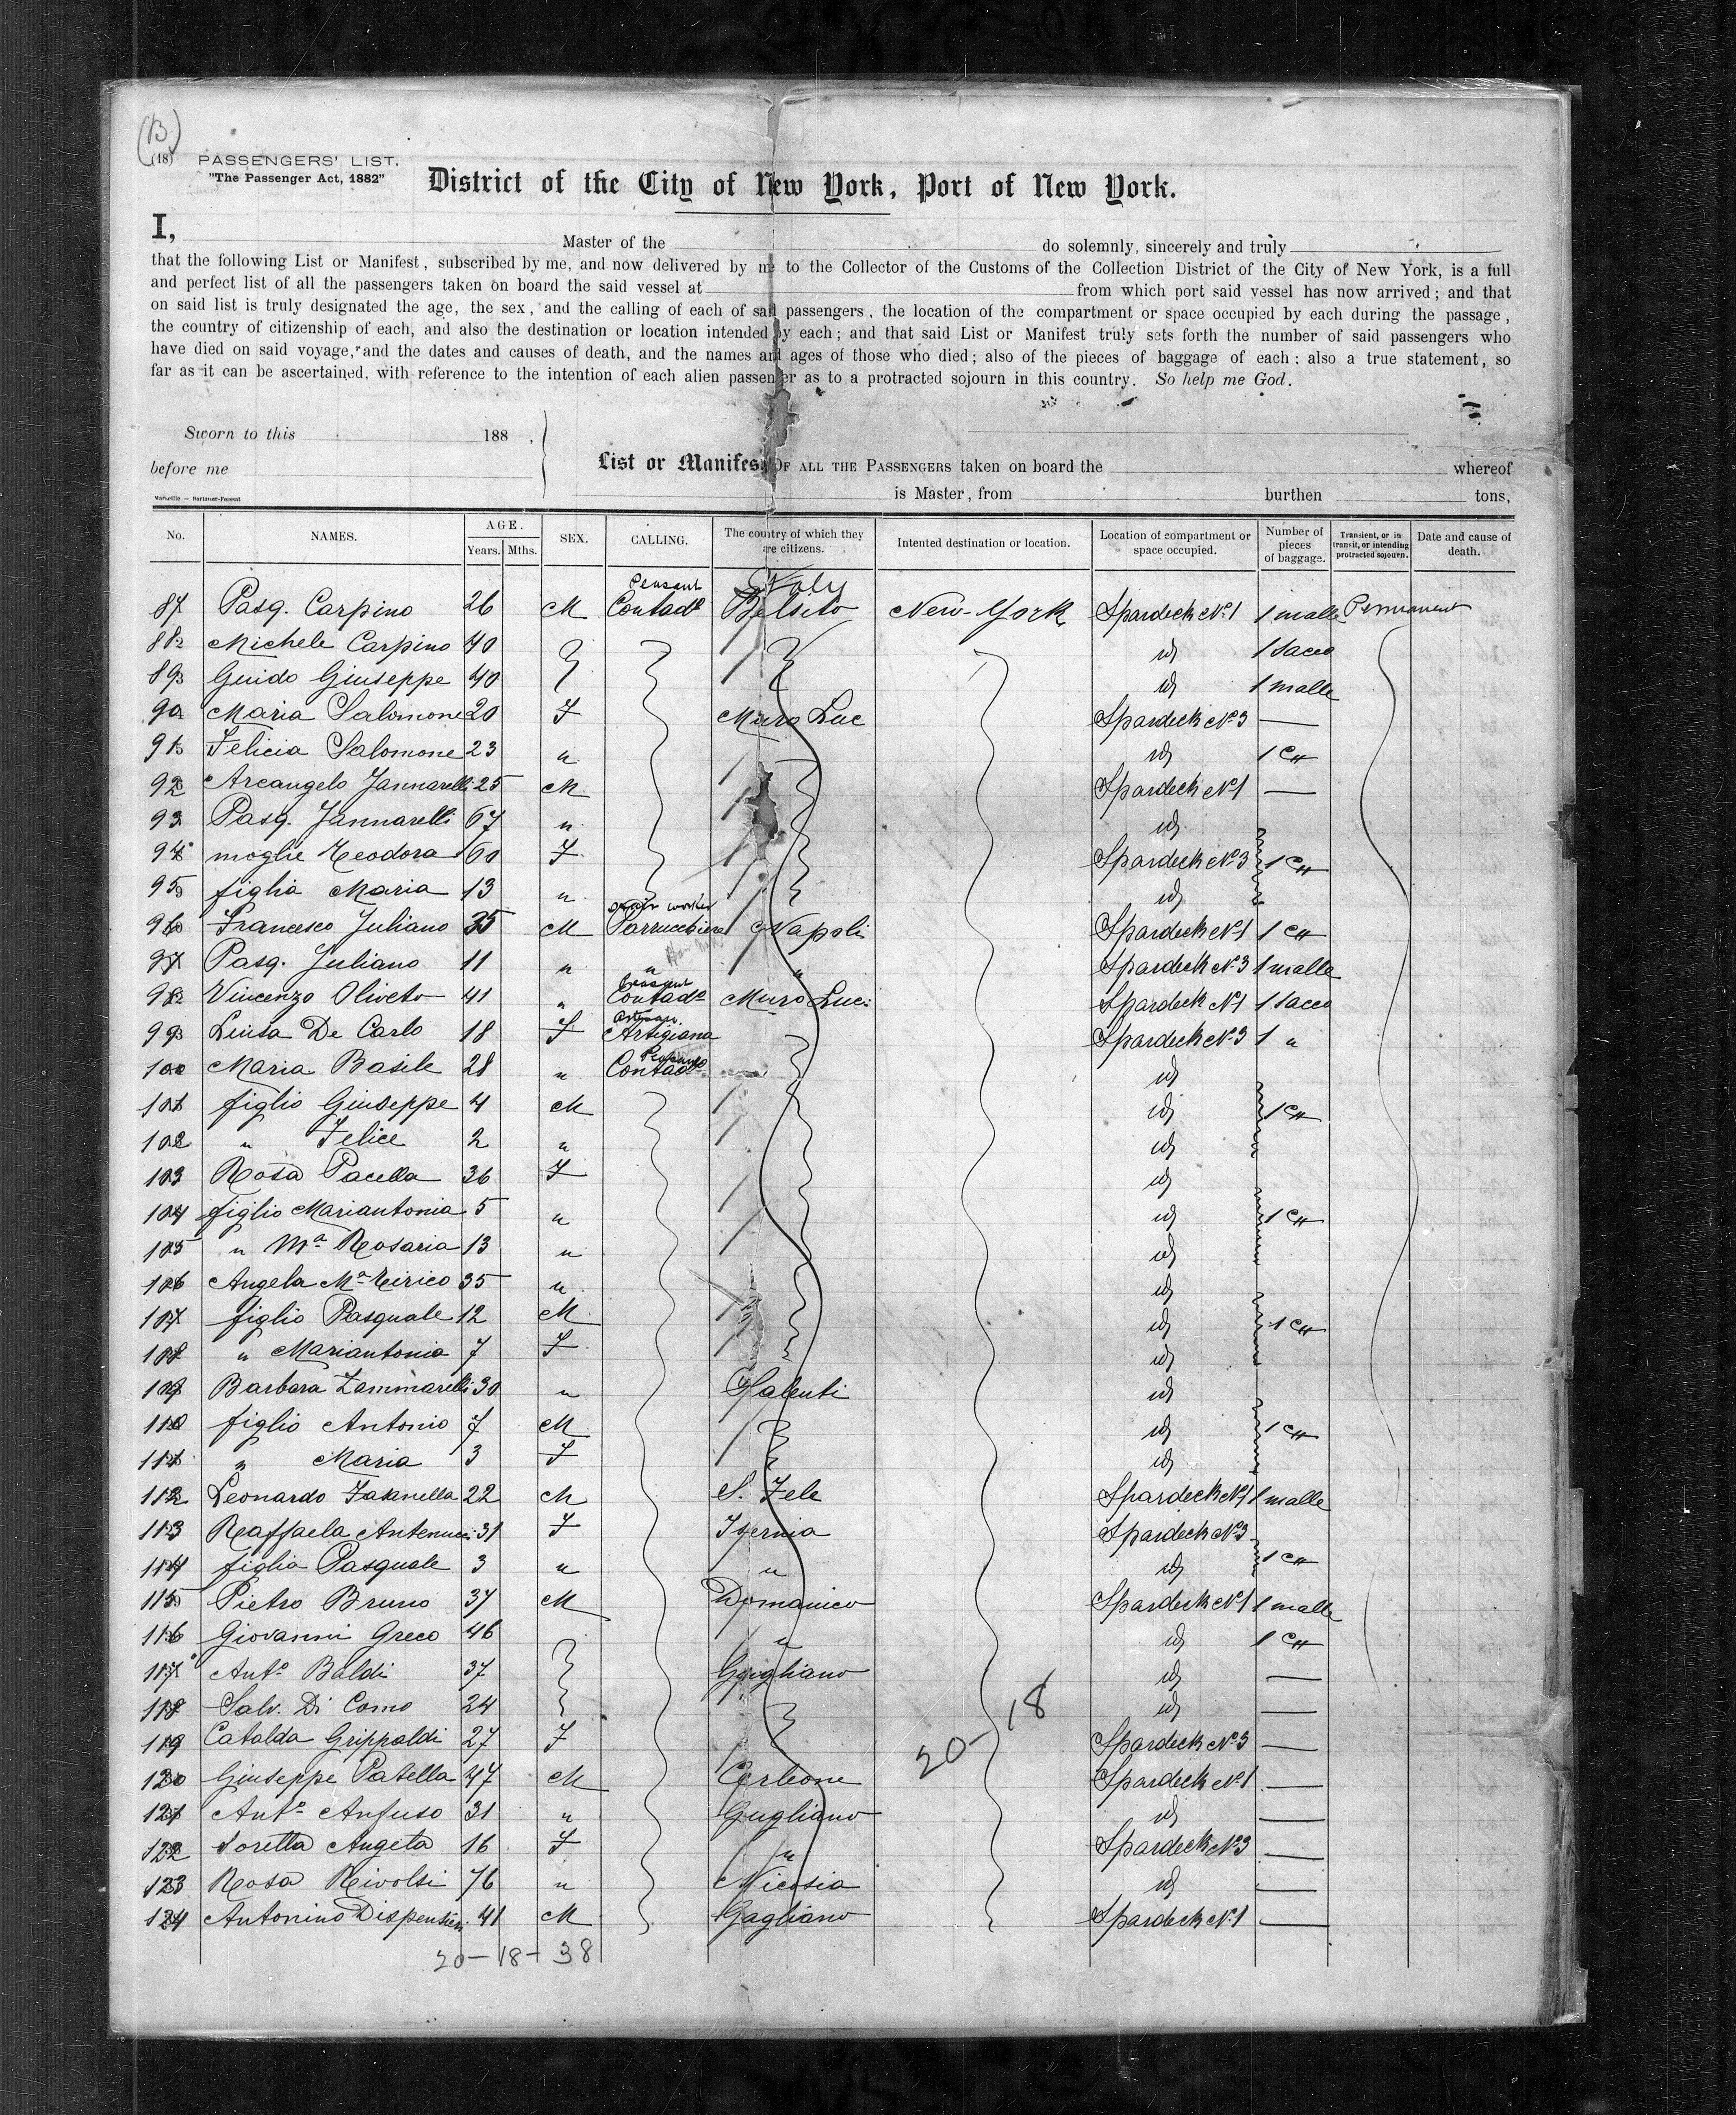 (B)
(18) PASSENGERS' LIST.
"The Passenger Act, 1882"
District of the City of New York, Port of New York.
I, Master of the do solemnly, sincerely and truly
that the following List or Manifest, subscribed by me, and now delivered by me to the Collector of the Customs of the Collection District of the City of New York, is a full
and perfect list of all the passengers taken on board the said vessel at from which port said vessel has now arrived; and that
on said list is truly designated the age, the sex, and the calling of each of said passengers, the location of the compartment or space occupied by each during the passage,
the country of citizenship of each, and also the destination or location intended by each; and that said List or Manifest truly sets forth the number of said passengers who
have died on said voyage, and the dates and causes of death, and the names and ages of those who died; also of the pieces of baggage of each: also a true statement, so
far as it can be ascertained, with reference to the intention of each alien passenger as to a protracted sojourn in this country. So help me God.
Sworn to this 188 ,
before me
List or Manifest OF ALL THE PASSENGERS taken on board the whereof
is Master, from burthen tons,
No. NAMES. AGE. Years. Mths. SEX. CALLING. The country of which they are citizens. Intented destination or location. Location of compartment or space occupied. Number of pieces of baggage. Transient, or in transit, or intending protracted sojourn. Date and cause of death.
Peasant Italy
87 Pasq. Carpino 26 M Contad° Belsito New-York Spardeck N°1 1 malle Permanent
88 Michele Carpino 40 id 1 sacco
89 Guido Giuseppe 40 id 1 malle
90 Maria Salomone 20 F Muro Luc Spardeck N°3 —
91 Felicia Salomone 23 " id 1 C"
92 Arcangelo Jannarelli 25 M Spardeck N°1 —
93 Pasq. Jannarelli 67 " id
94 moglie Teodora 60 F Spardeck N°3 1 C"
95 figlia Maria 13 " id
hair worker
96 Francesco Juliano 35 M Parrucchiere Napoli Spardeck N°1 1 C"
97 Pasq. Juliano 11 " " " Spardeck N°3 1 malle
Peasant
98 Vincenzo Oliveto 41 " Contad° Muro Luc. Spardeck N°1 1 sacco
Artisan
99 Luisa De Carlo 18 F Artigiana Spardeck N°3 1 "
Peasant
100 Maria Basile 28 " Contad° id
101 figlio Giuseppe 4 M id 1 C"
102 " Felice 2 " id
103 Rosa Pacella 36 F id
104 figlio Mariantonia 5 " id 1 C"
105 " Mª Rosaria 13 " id
106 Angela Mª Tirico 35 " id
107 figlio Pasquale 12 M id 1 C"
108 " Mariantonia 7 F id
109 Barbara Zammarelli 30 " id
110 figlio Antonio 7 M id 1 C"
111 " Maria 3 F id
112 Leonardo 22 M S. Fele Spardeck N°1 1 malle
113 Raffaela Antenucci 31 F Isernia Spardeck N°3
114 figlia Pasquale 3 " " id 1 C"
115 Pietro Bruno 37 M Domanico Spardeck N°1 1 malle
116 Giovanni Greco 46 " id 1 C"
117 Ant° Baldi 37 Gagliano id —
118 Salv. Di Como 24 id —
119 Catalda Grippaldi 27 F Spardeck N°3 —
20-18
120 Giuseppe Patella 47 M Corleone Spardeck N°1 —
121 Ant° Anfuso 31 " Gugliano id —
122 Loretta Angela 16 F " Spardeck N°3 —
123 Rosa Rivolsi 76 " Nicosia id —
124 Antonino Dispensieri 41 M Gagliano Spardeck N°1 —
20-18-38